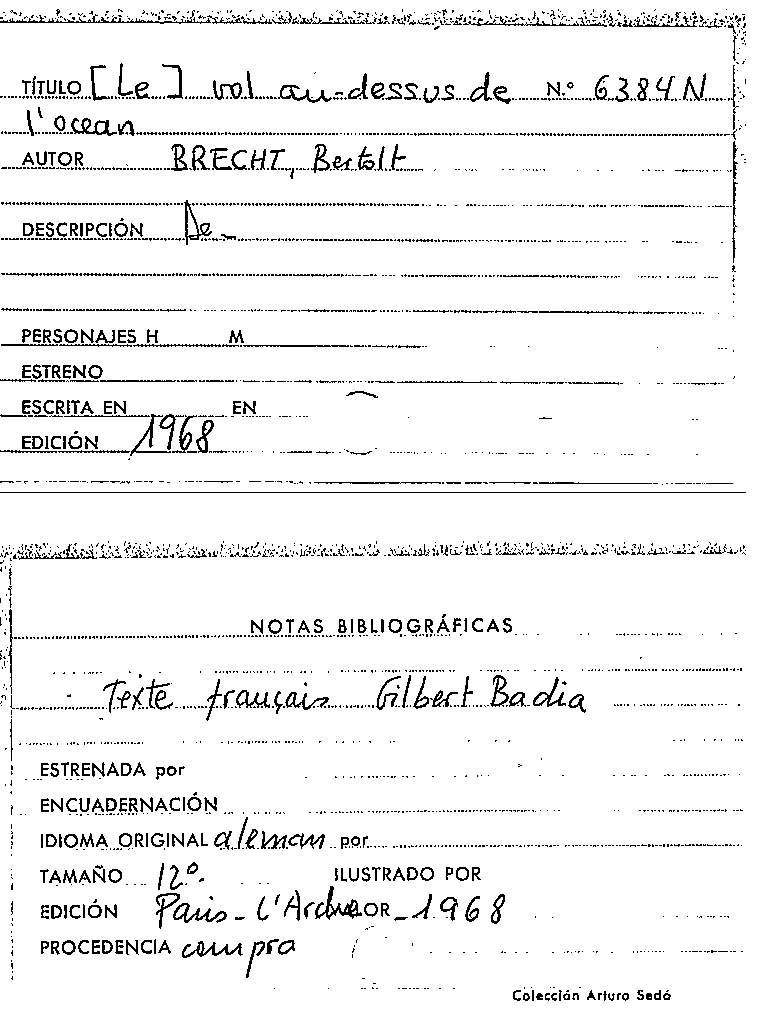 TÍTULO [Le] vol au-dessus de N.º 6384N
l'ocean
AUTOR BRECHT, Bertolt
DESCRIPCIÓN De_
PERSONAJES H M
ESTRENO
ESCRITA EN EN
EDICIÓN 1968
NOTAS BIBLIOGRÁFICAS
Texte français Gilbert Badia
ESTRENADA por
ENCUADERNACIÓN
IDIOMA ORIGINAL aleman por
TAMAÑO 12º. ILUSTRADO POR
EDICIÓN Paris - L'Arche OR - 1968
PROCEDENCIA compra
Colección Arturo Sedó